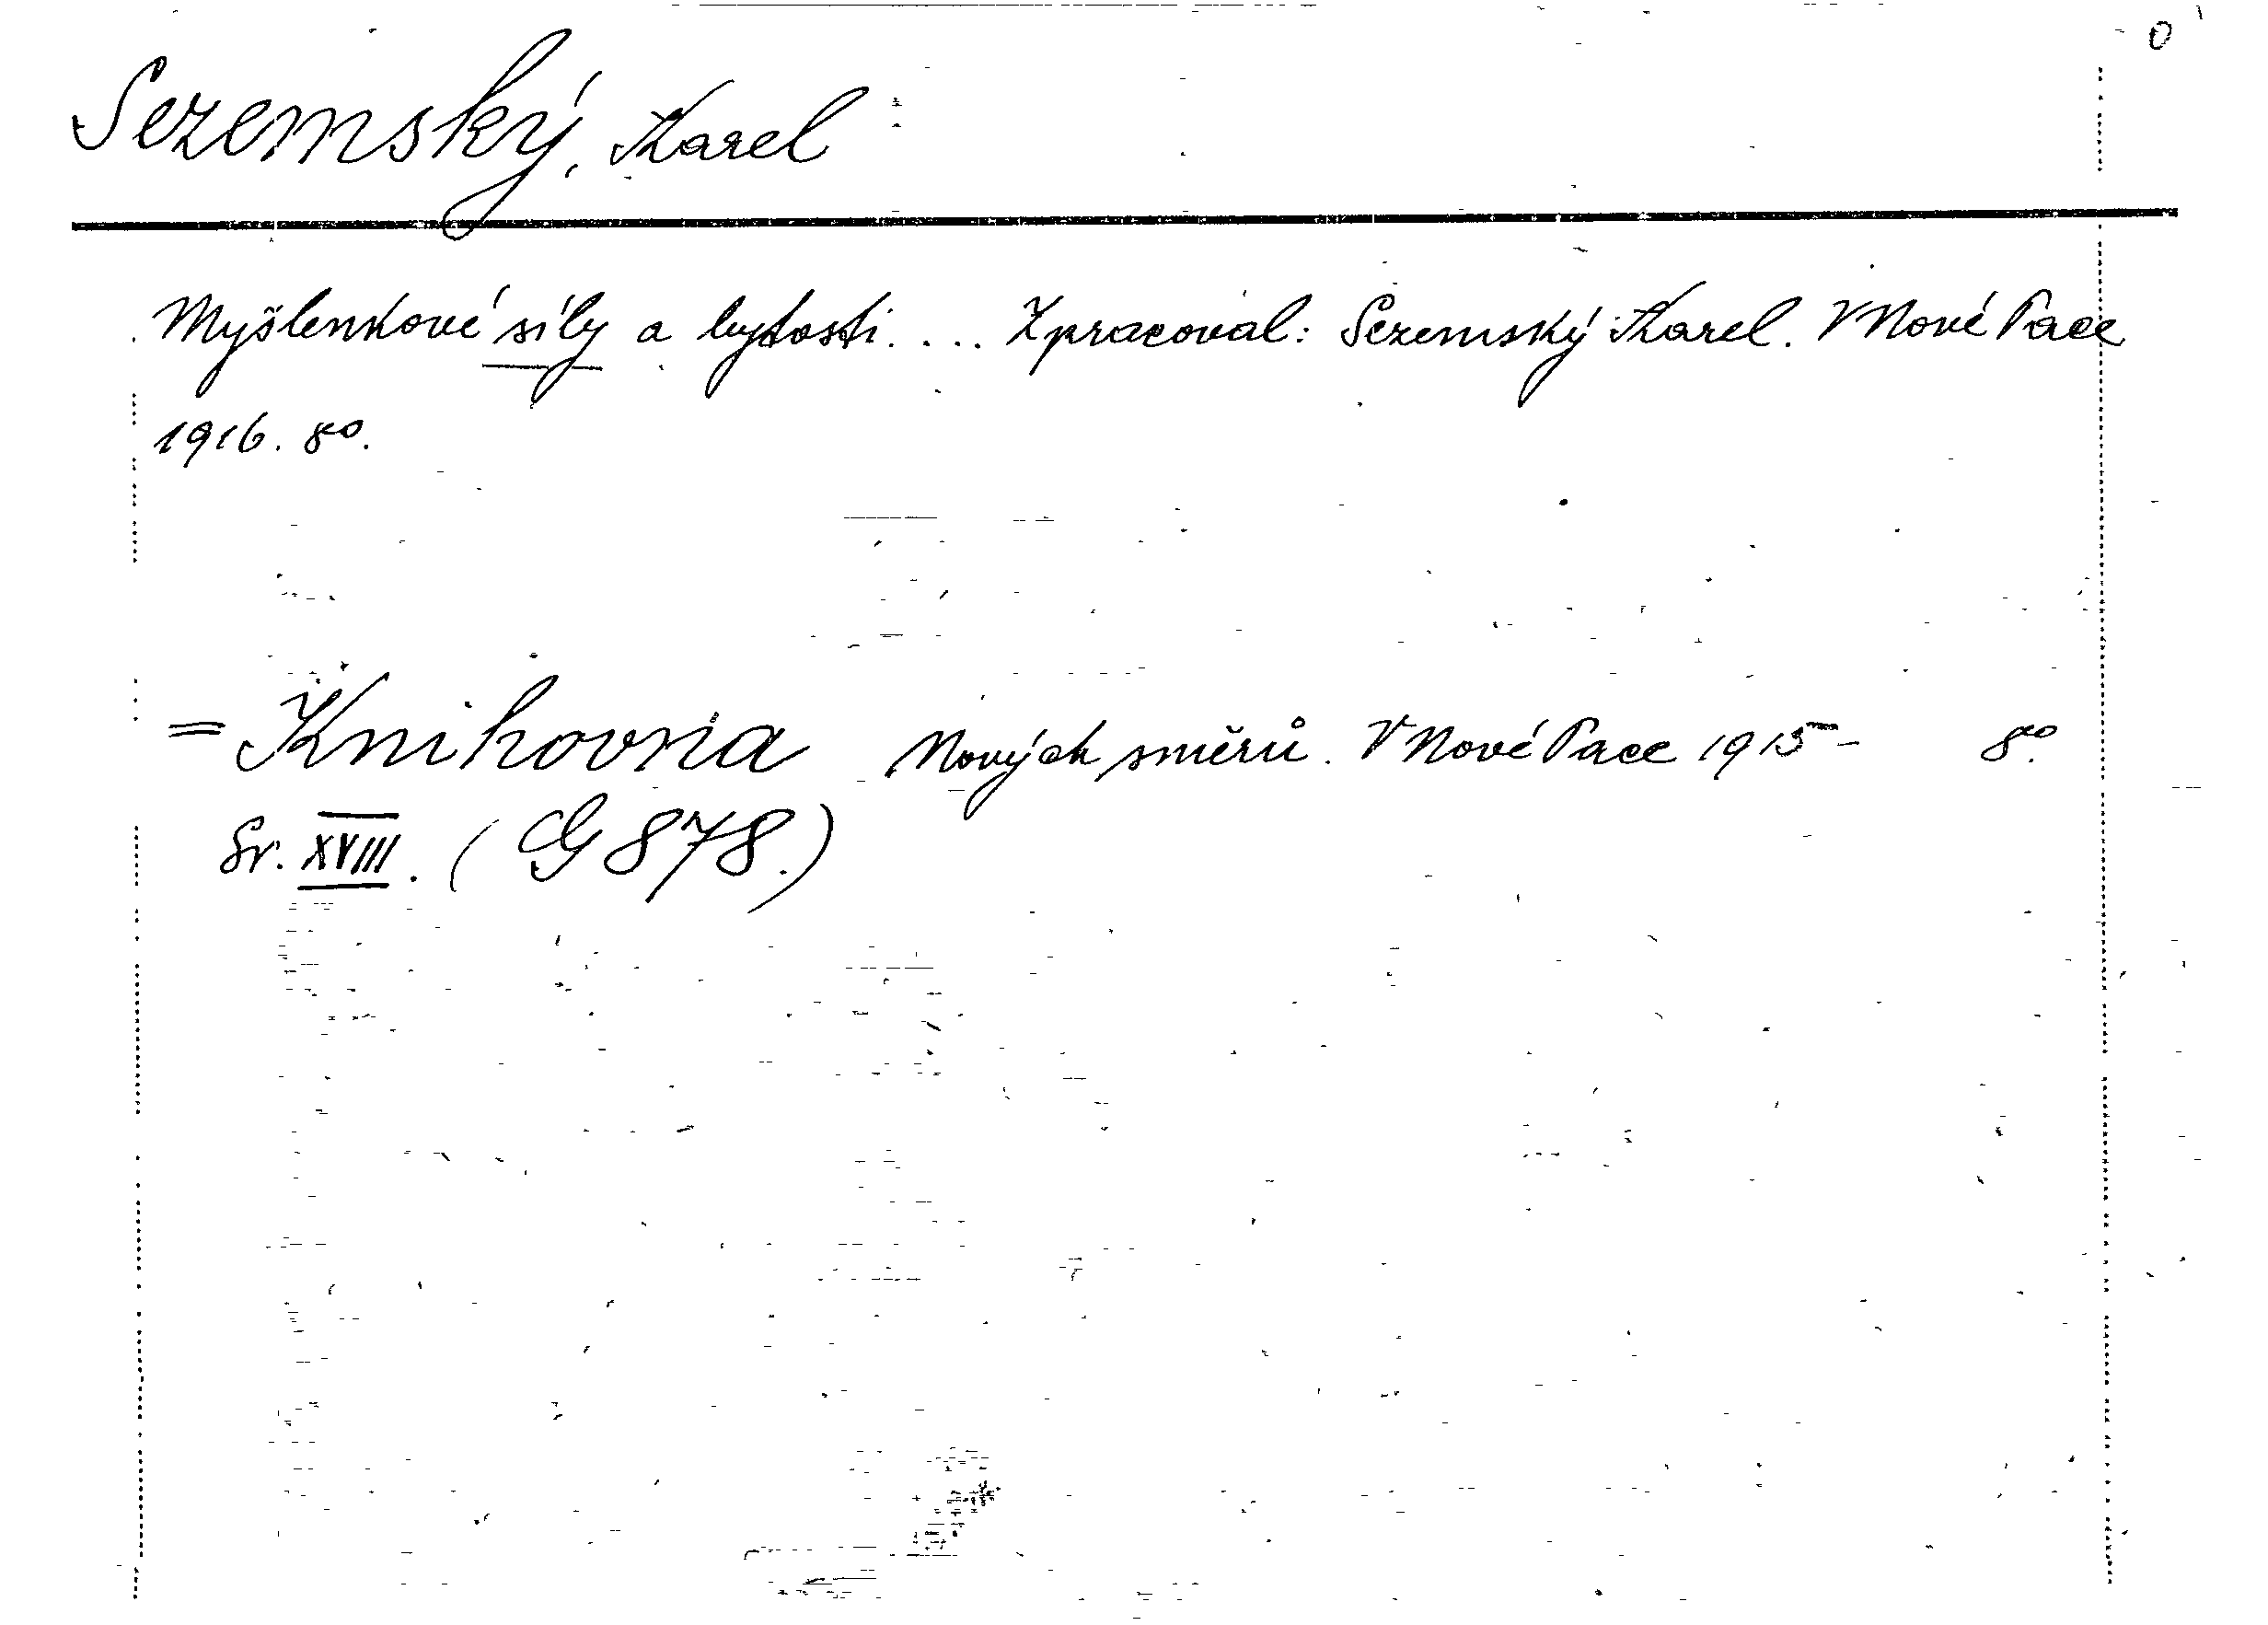 0
Sezemský, Karel
Myšlenkové síly a bytosti. ... Zpracoval: Sezemský Karel. V Nové Pace
1916. 8°.
= Knihovna Nových směrů. V Nové Pace 1915 - 8°.
Sv. XVIII. (G 878.)